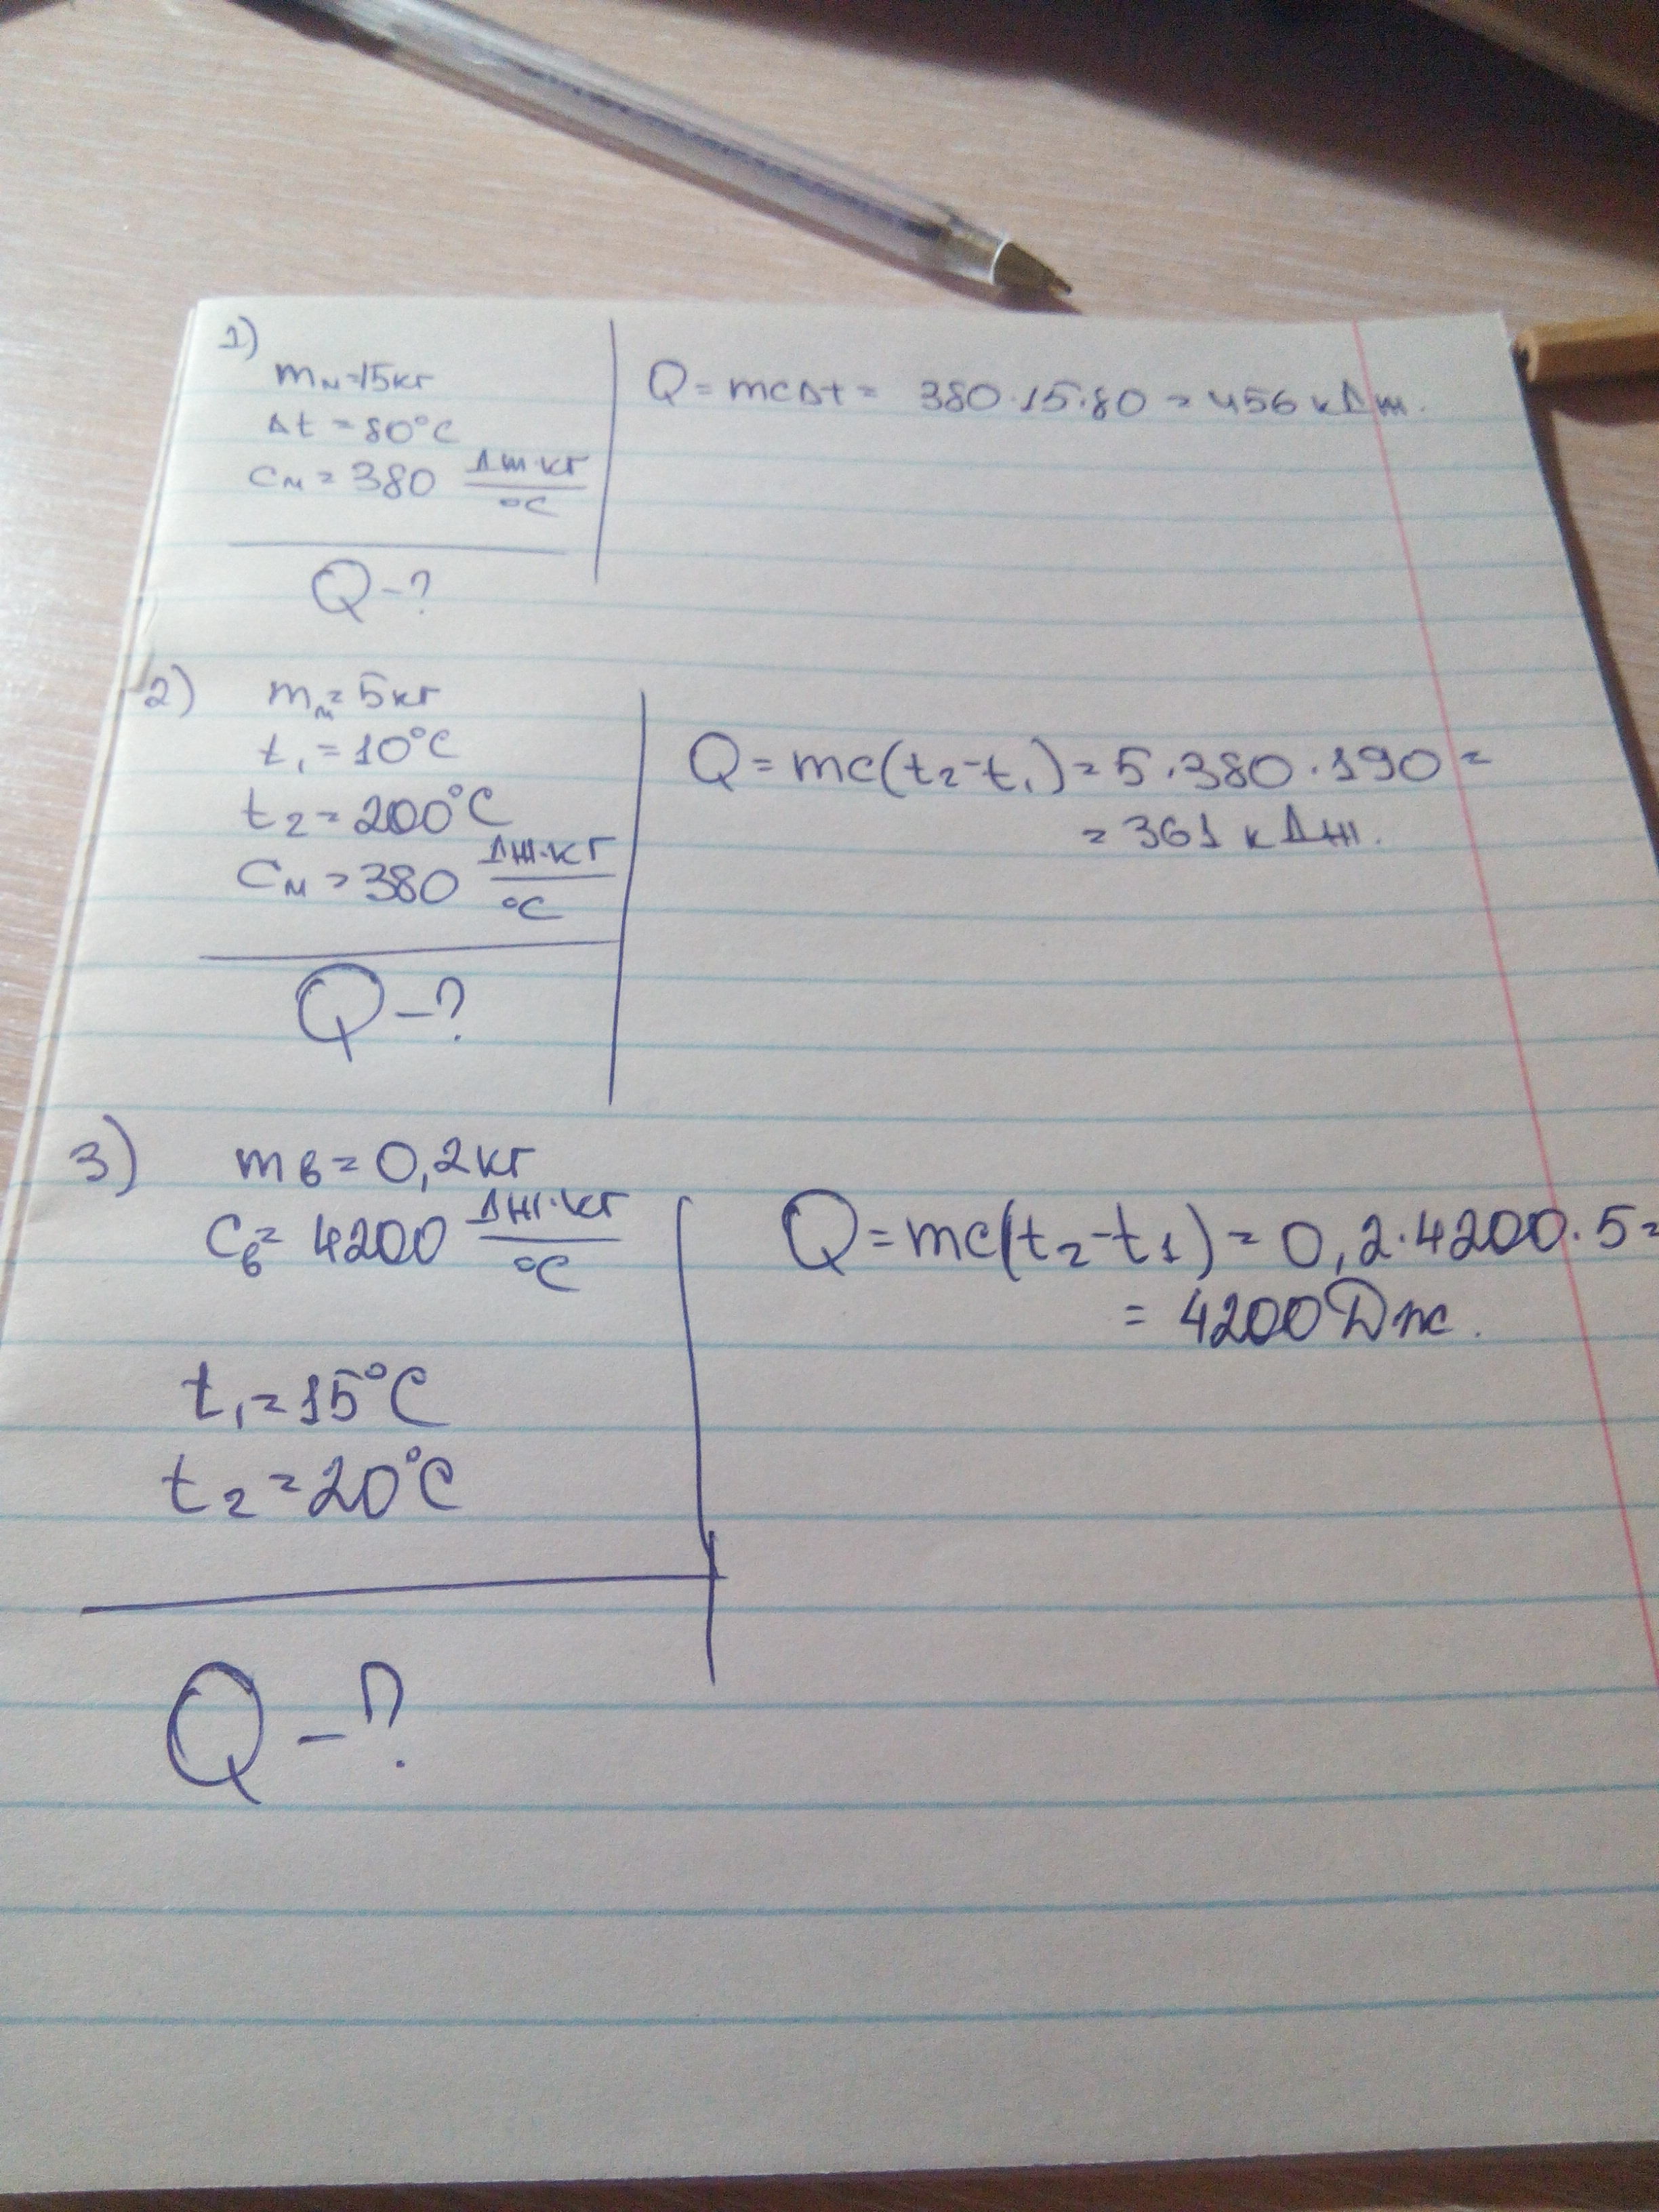 1)
mм=15кг
Δt=80°C
cм=380 Дж·кг/°C
Q-?
Q=mcΔt= 380·15·80=456 кДж.
2) mм=5кг
t₁=10°C
t₂=200°C
Cм=380 Дж·кг/°C
Q-?
Q=mc(t₂-t₁)=5·380·190=
=361 кДж.
3) mв=0,2кг
Cв=4200 Дж·кг/°C
t₁=15°C
t₂=20°C
Q-?
Q=mc(t₂-t₁)=0,2·4200·5=
= 4200Дж.